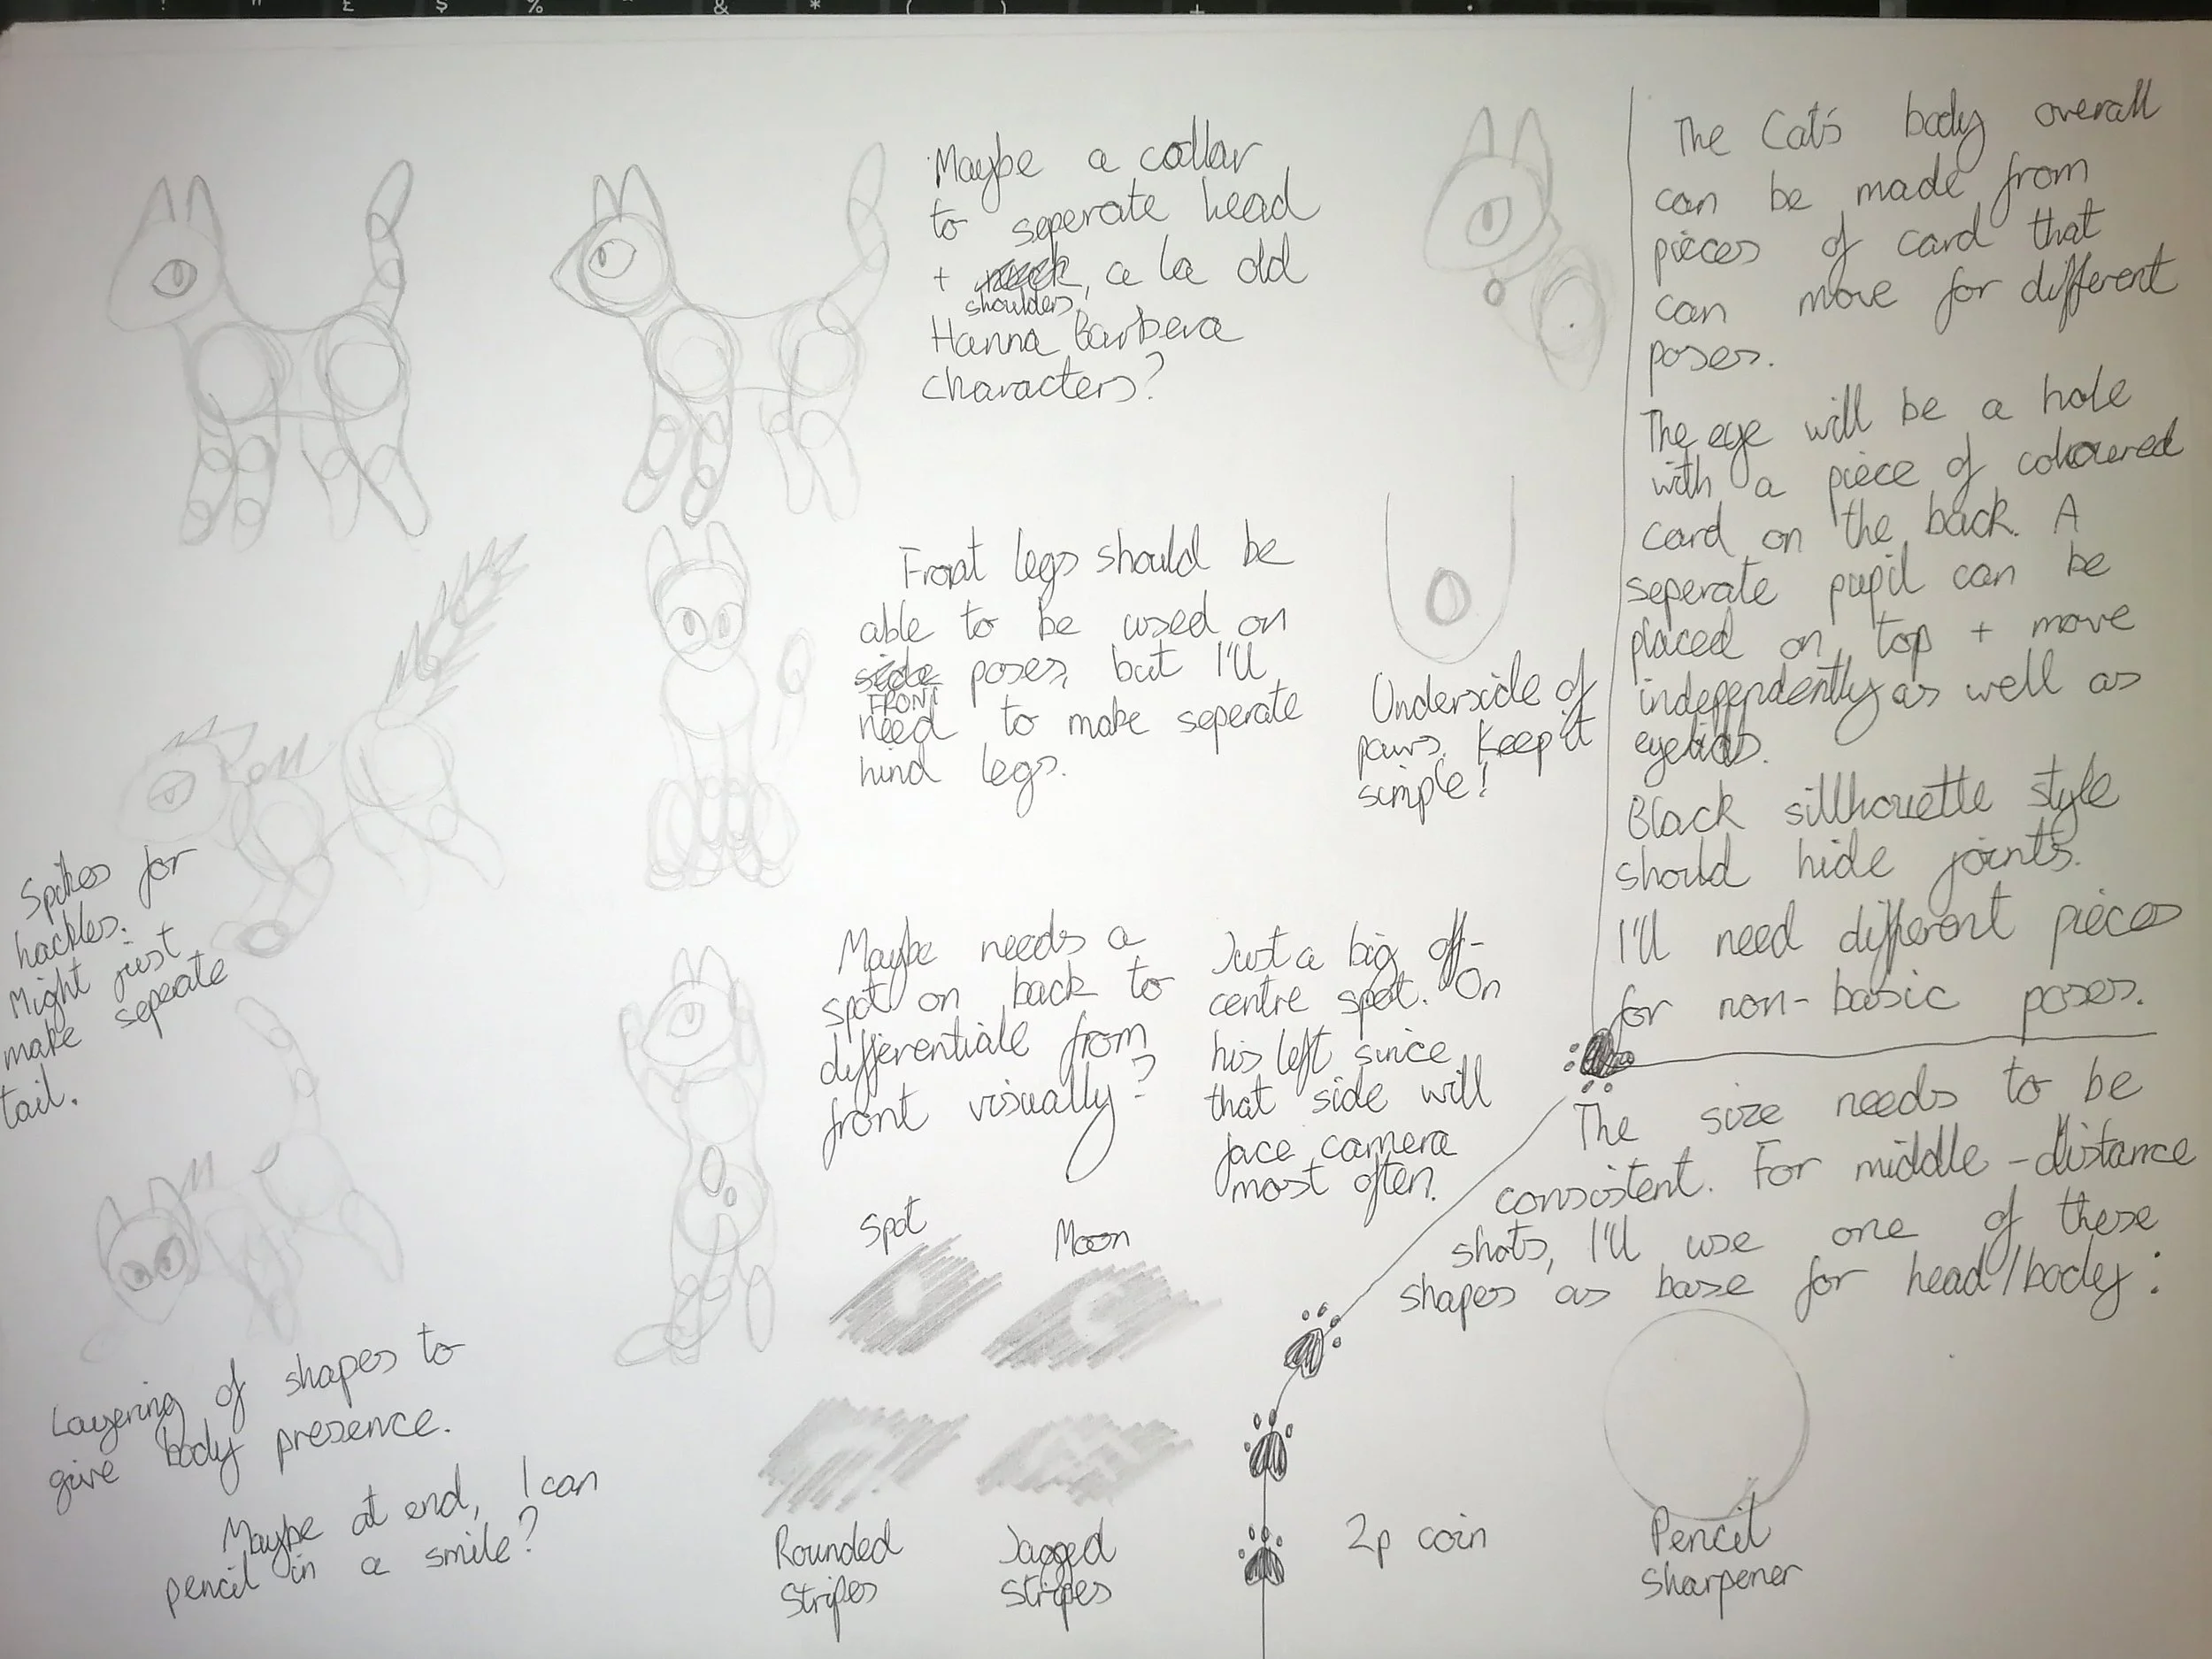 ! " £ $ % & * ( ) +
Maybe a collar
to seperate head
+ neck, a la old
shoulders
Hanna Barbera
characters?
Front legs should be
able to be used on
side poses, but I'll
FRONT
need to make seperate
hind legs.
Underside of
paws. Keep it
simple!
Spikes for
hackles.
Might just
make seperate
tail.
Maybe needs a
spot on back to
differentiate from
front visually?
Just a big off-
centre spot. On
his left since
that side will
face camera
most often.
Spot
Moon
Rounded
Stripes
Jagged
Stripes
Layering of shapes to
give body presence.
Maybe at end, I can
pencil in a smile?
The Cat's body overall
can be made from
pieces of card that
can move for different
poses.
The eye will be a hole
with a piece of coloured
card on the back. A
seperate pupil can be
placed on top + move
independently as well as
eyelids.
Black sillhouette style
should hide joints.
I'll need different pieces
for non-basic poses.
The size needs to be
consistent. For middle-distance
shots, I'll use one of these
shapes as base for head/body:
2p coin
Pencil
Sharpener